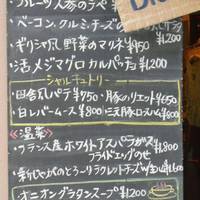 ・ベーコン、クルミ、チーズの
¥1,200
・ギリシャ風 野菜のマリネ ¥950
・活〆ジマグロ カルパッチョ ¥1,200
シャルキュトリー
・田舎風パテ ¥950 ・豚のリエット ¥650
・白レバームース ¥800 ・三元豚ロース ¥800
≪温菜≫
・フランス産ホワイトアスパラガス
フライドエッグのせ
・新じゃがのとろーりラクレットチーズ
・オニオングラタンスープ ¥1,200